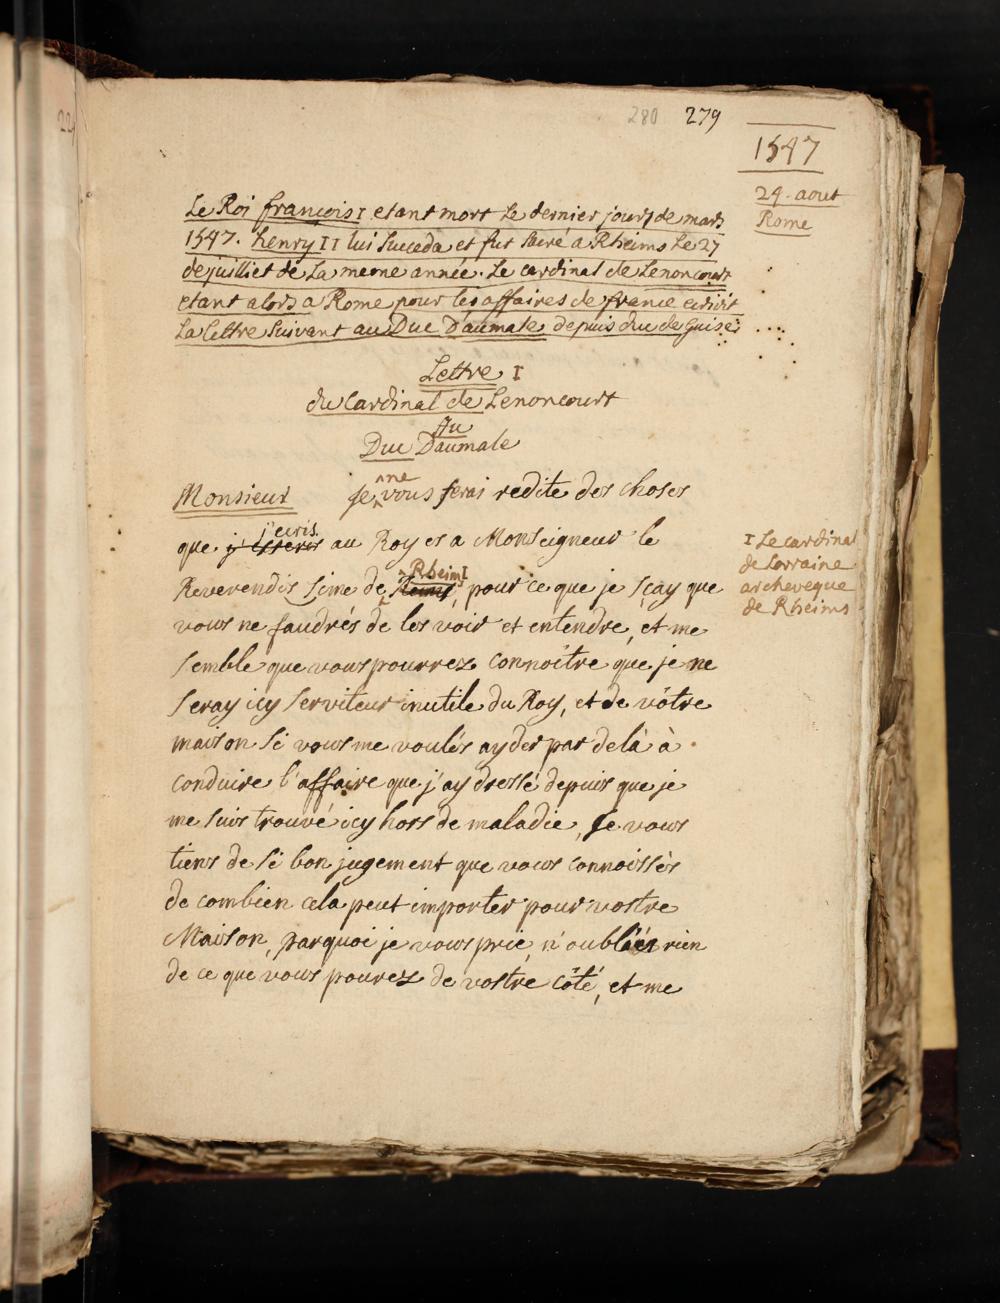 280 279
1547
24. aout
Rome
Le Roi françois I etant mort Le dernier jour de mars
1547. henry II lui succeda et fut sacré a Rheims Le 27
de juilliet de La meme année. Le cardinal de Lenoncourt
etant alors a Rome pour les affaires de france ecrivit
La lettre suivant au Duc D'aumale, depuis duc de Guise
Lettre I
du Cardinal de Lenoncourt
Au
Duc Daumale
Monsieur Je ne vous ferai redite des choses
que j'ecris au Roy et a Monseigneur le
Reverendissime de Rheims I, pour ce que je sçay que
vous ne faudrés de les voir et entendre, et me
semble que vous pourrez connoître que je ne
seray icy serviteur inutile du Roy, et de vôtre
maison si vous me voulés ayder par delà à
conduire l'affaire que j'ay dressé depuis que je
me suis trouvé icy hors de maladie, Je vous
tiens de si bon jugement que vous connoissés
de combien cela peut importer pour vostre
Maison, parquoi je vous prie, n'oubliés rien
de ce que vous pourez de vostre côté, et me
I Le cardinal
de Lorraine
archeveque
de Rheims